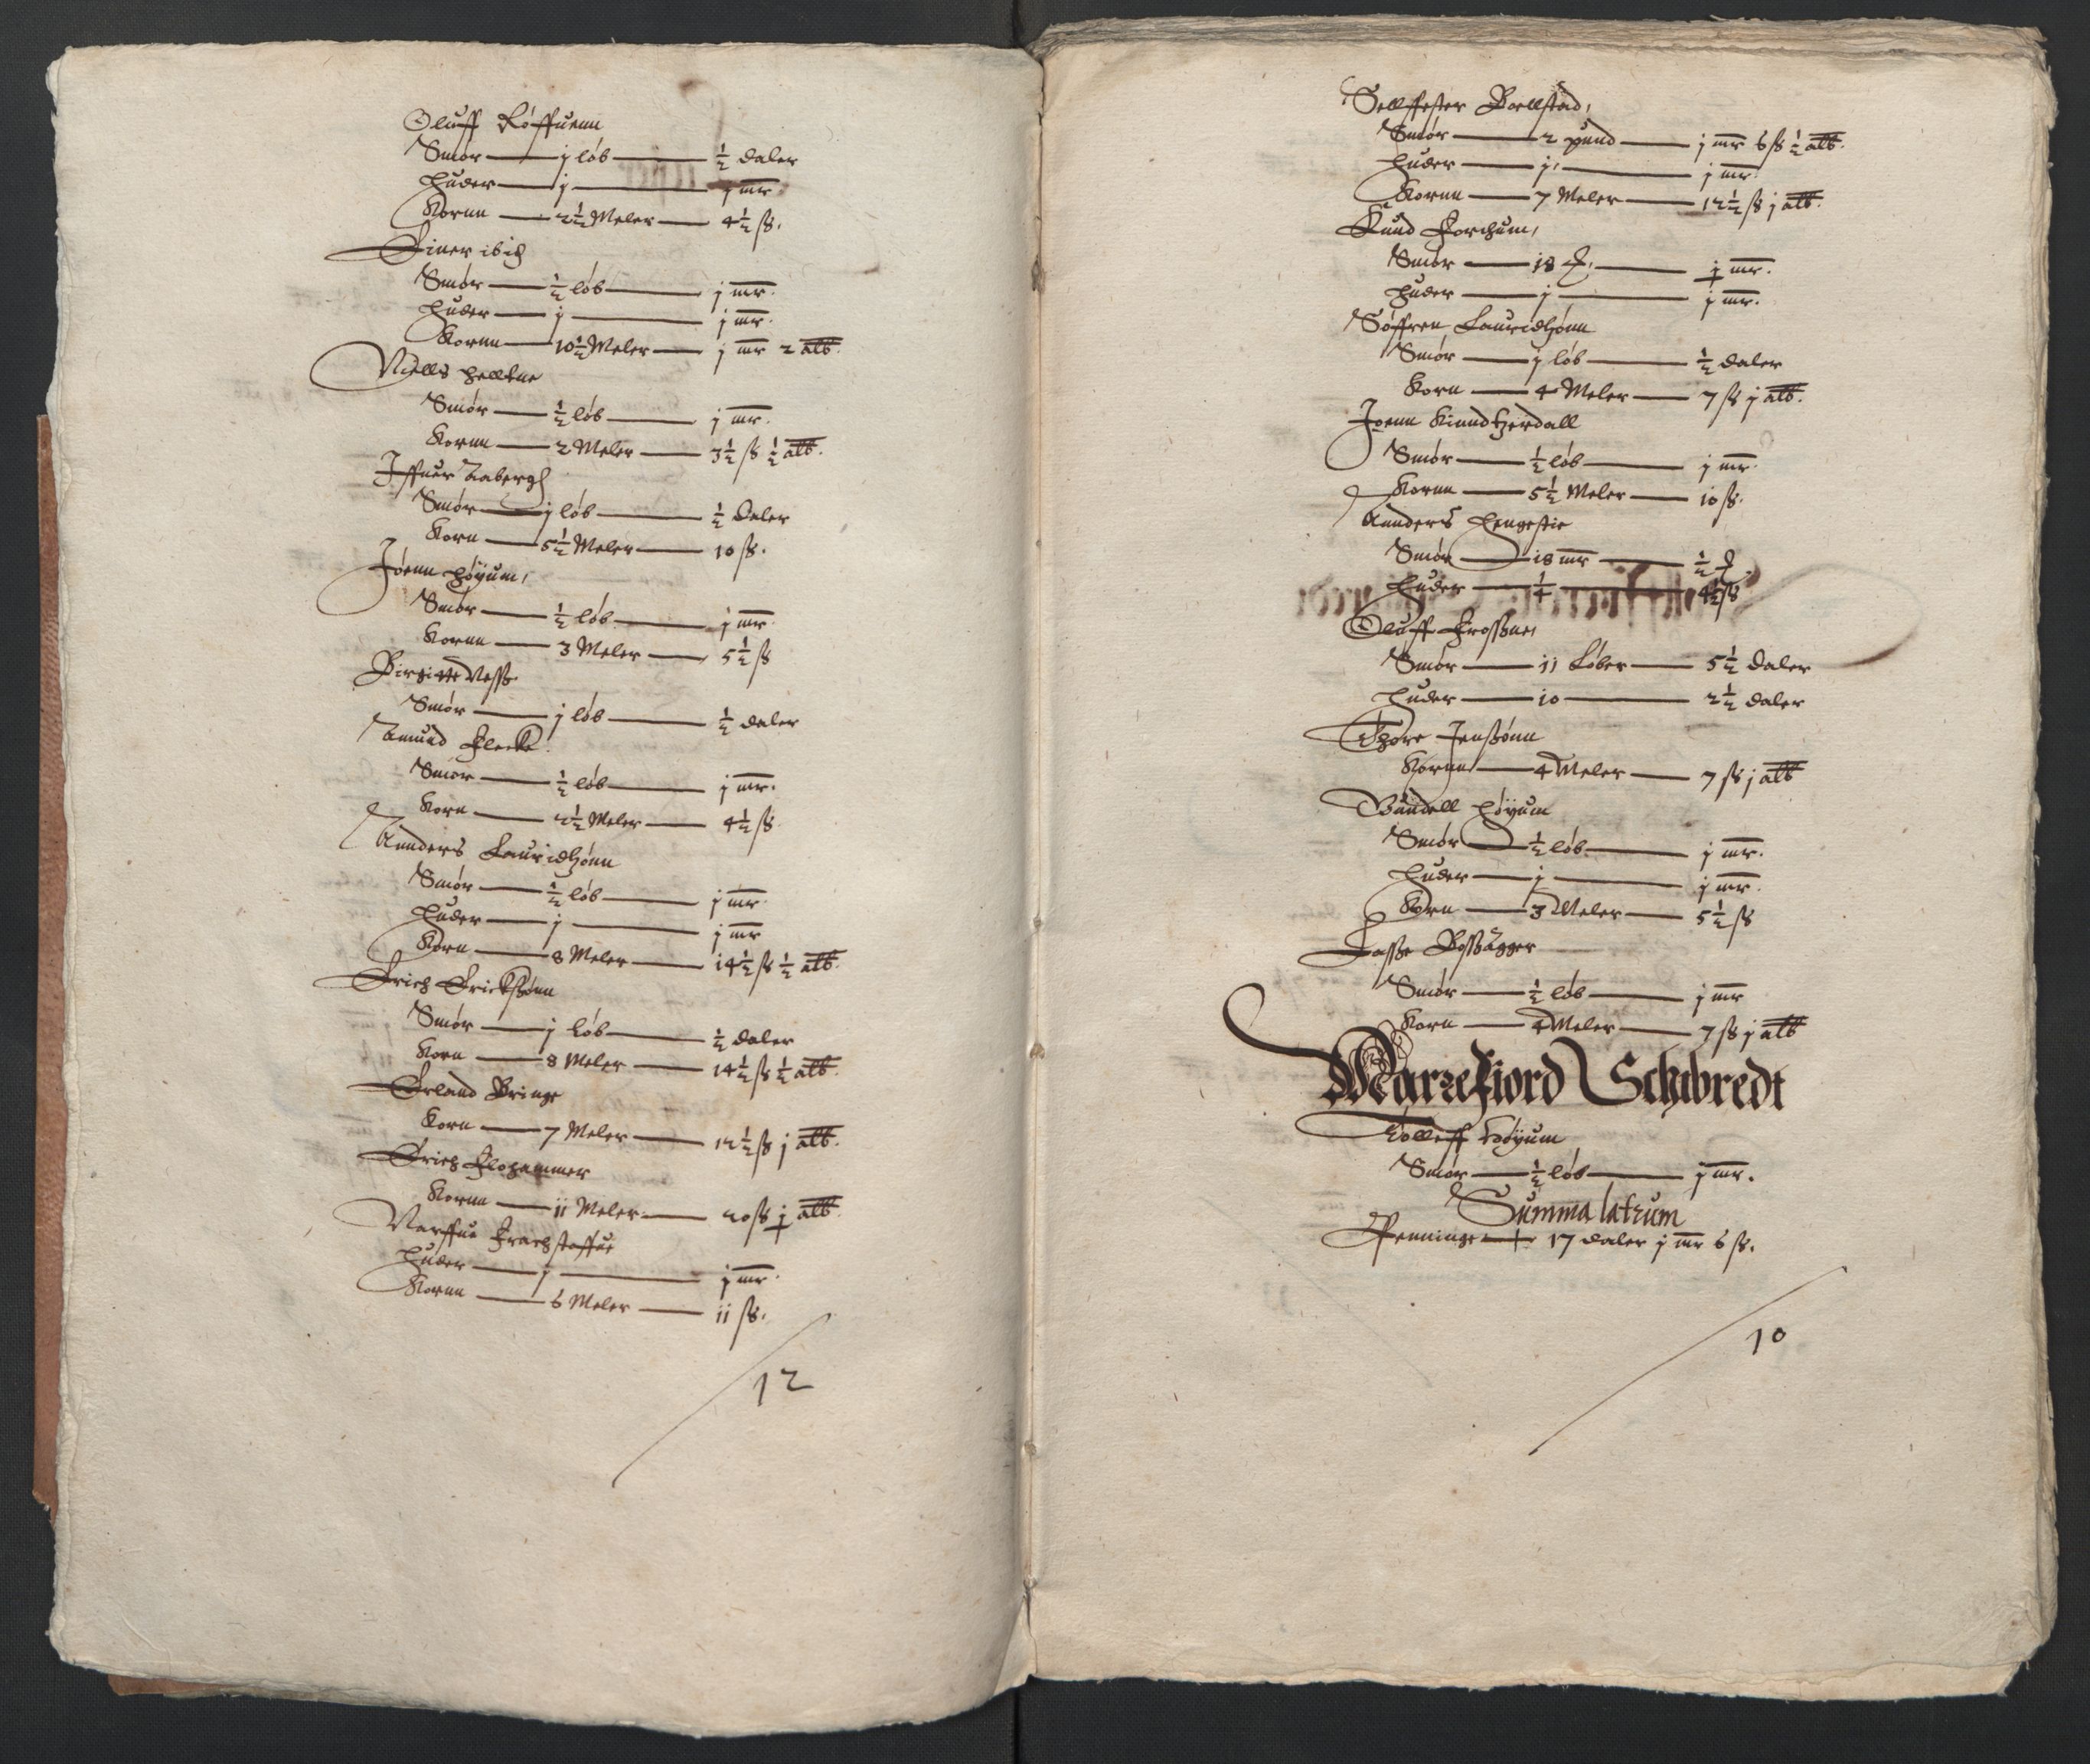 Oluff Røffuenn
Smør — j løb — ½ daler
Huder — j — j mr
Kornn — 2½ Meler — 4½ ß.
Einer ibid
Smør — ½ løb — j mr.
Huder — j — j mr.
Kornn — 10½ Meler — j mr 2 alb.
Niells Helltne
Smør — ½ løb — j mr.
Kornn — 2 Meler — 3½ ß ½ alb.
Iffuer Aabergh
Smør — j løb — ½ daler
Korn — 5½ Meler — 10 ß.
Joenn Høyum,
Smør — ½ løb — j mr.
Kornn — 3 Meler — 5½ ß
Birgitte Ness
Smør — j løb — ½ daler
Amund Flecke
Smør — ½ løb — j mr.
Korn — 2½ Meler — 4½ ß
Annders Lauridsønn
Smør — ½ løb — j mr.
Huder — j — j mr
Korn — 8 Meler — 14½ ß ½ alb.
Erich Erickßønn
Smør — j Løb — ½ daler
Korn — 8 Meler — 14½ ß ½ alb.
Erland Bringe
Korn — 7 Meler — 12½ ß j alb.
Erich Flohammer
Kornn — 11 Meler — 20 ß j alb.
Narffue
Huder — j — j mr.
Kornn — 6 Meler — 11 ß.
12
Sellffester Boellstad,
Smør — 2 pund — j mr 6 ß ½ alb.
Huder — j, — j mr.
Kornn — 7 Meler — 12½ ß j alb.
Knud
Smør — 18 — j mr.
Huder — j — j mr.
Søffren Lauridsønn
Smør — j løb — ½ daler
Korn — 4 Meler — 7 ß j alb.
Joenn
Smør — ½ løb — j mr.
Kornn — 5½ Meler — 10 ß.
Annders Hengestie
Smør — 18 mr — ½
Huder — ¼ — 4½ ß
Oluff Frosßne,
Smør — 11 Løber — 5½ daler
Huder — 10 — 2½ daler
Thore Jenßønn
Kornn — 4 Meler — 7 ß j alb
Gundell Høyum
Smør — ½ løb — j mr.
Huder — j — j mr.
Korn — 3 Meler — 5½ ß
Lasse
Smør — ½ løb — j mr
Korn — 4 Meler — 7 ß j alb
Marzefiord Schibredt
Tolleff Høyum
Smør — ½ løb — j mr.
Summa latrum
Penninge — 17 daler j mr 6 ß.
10